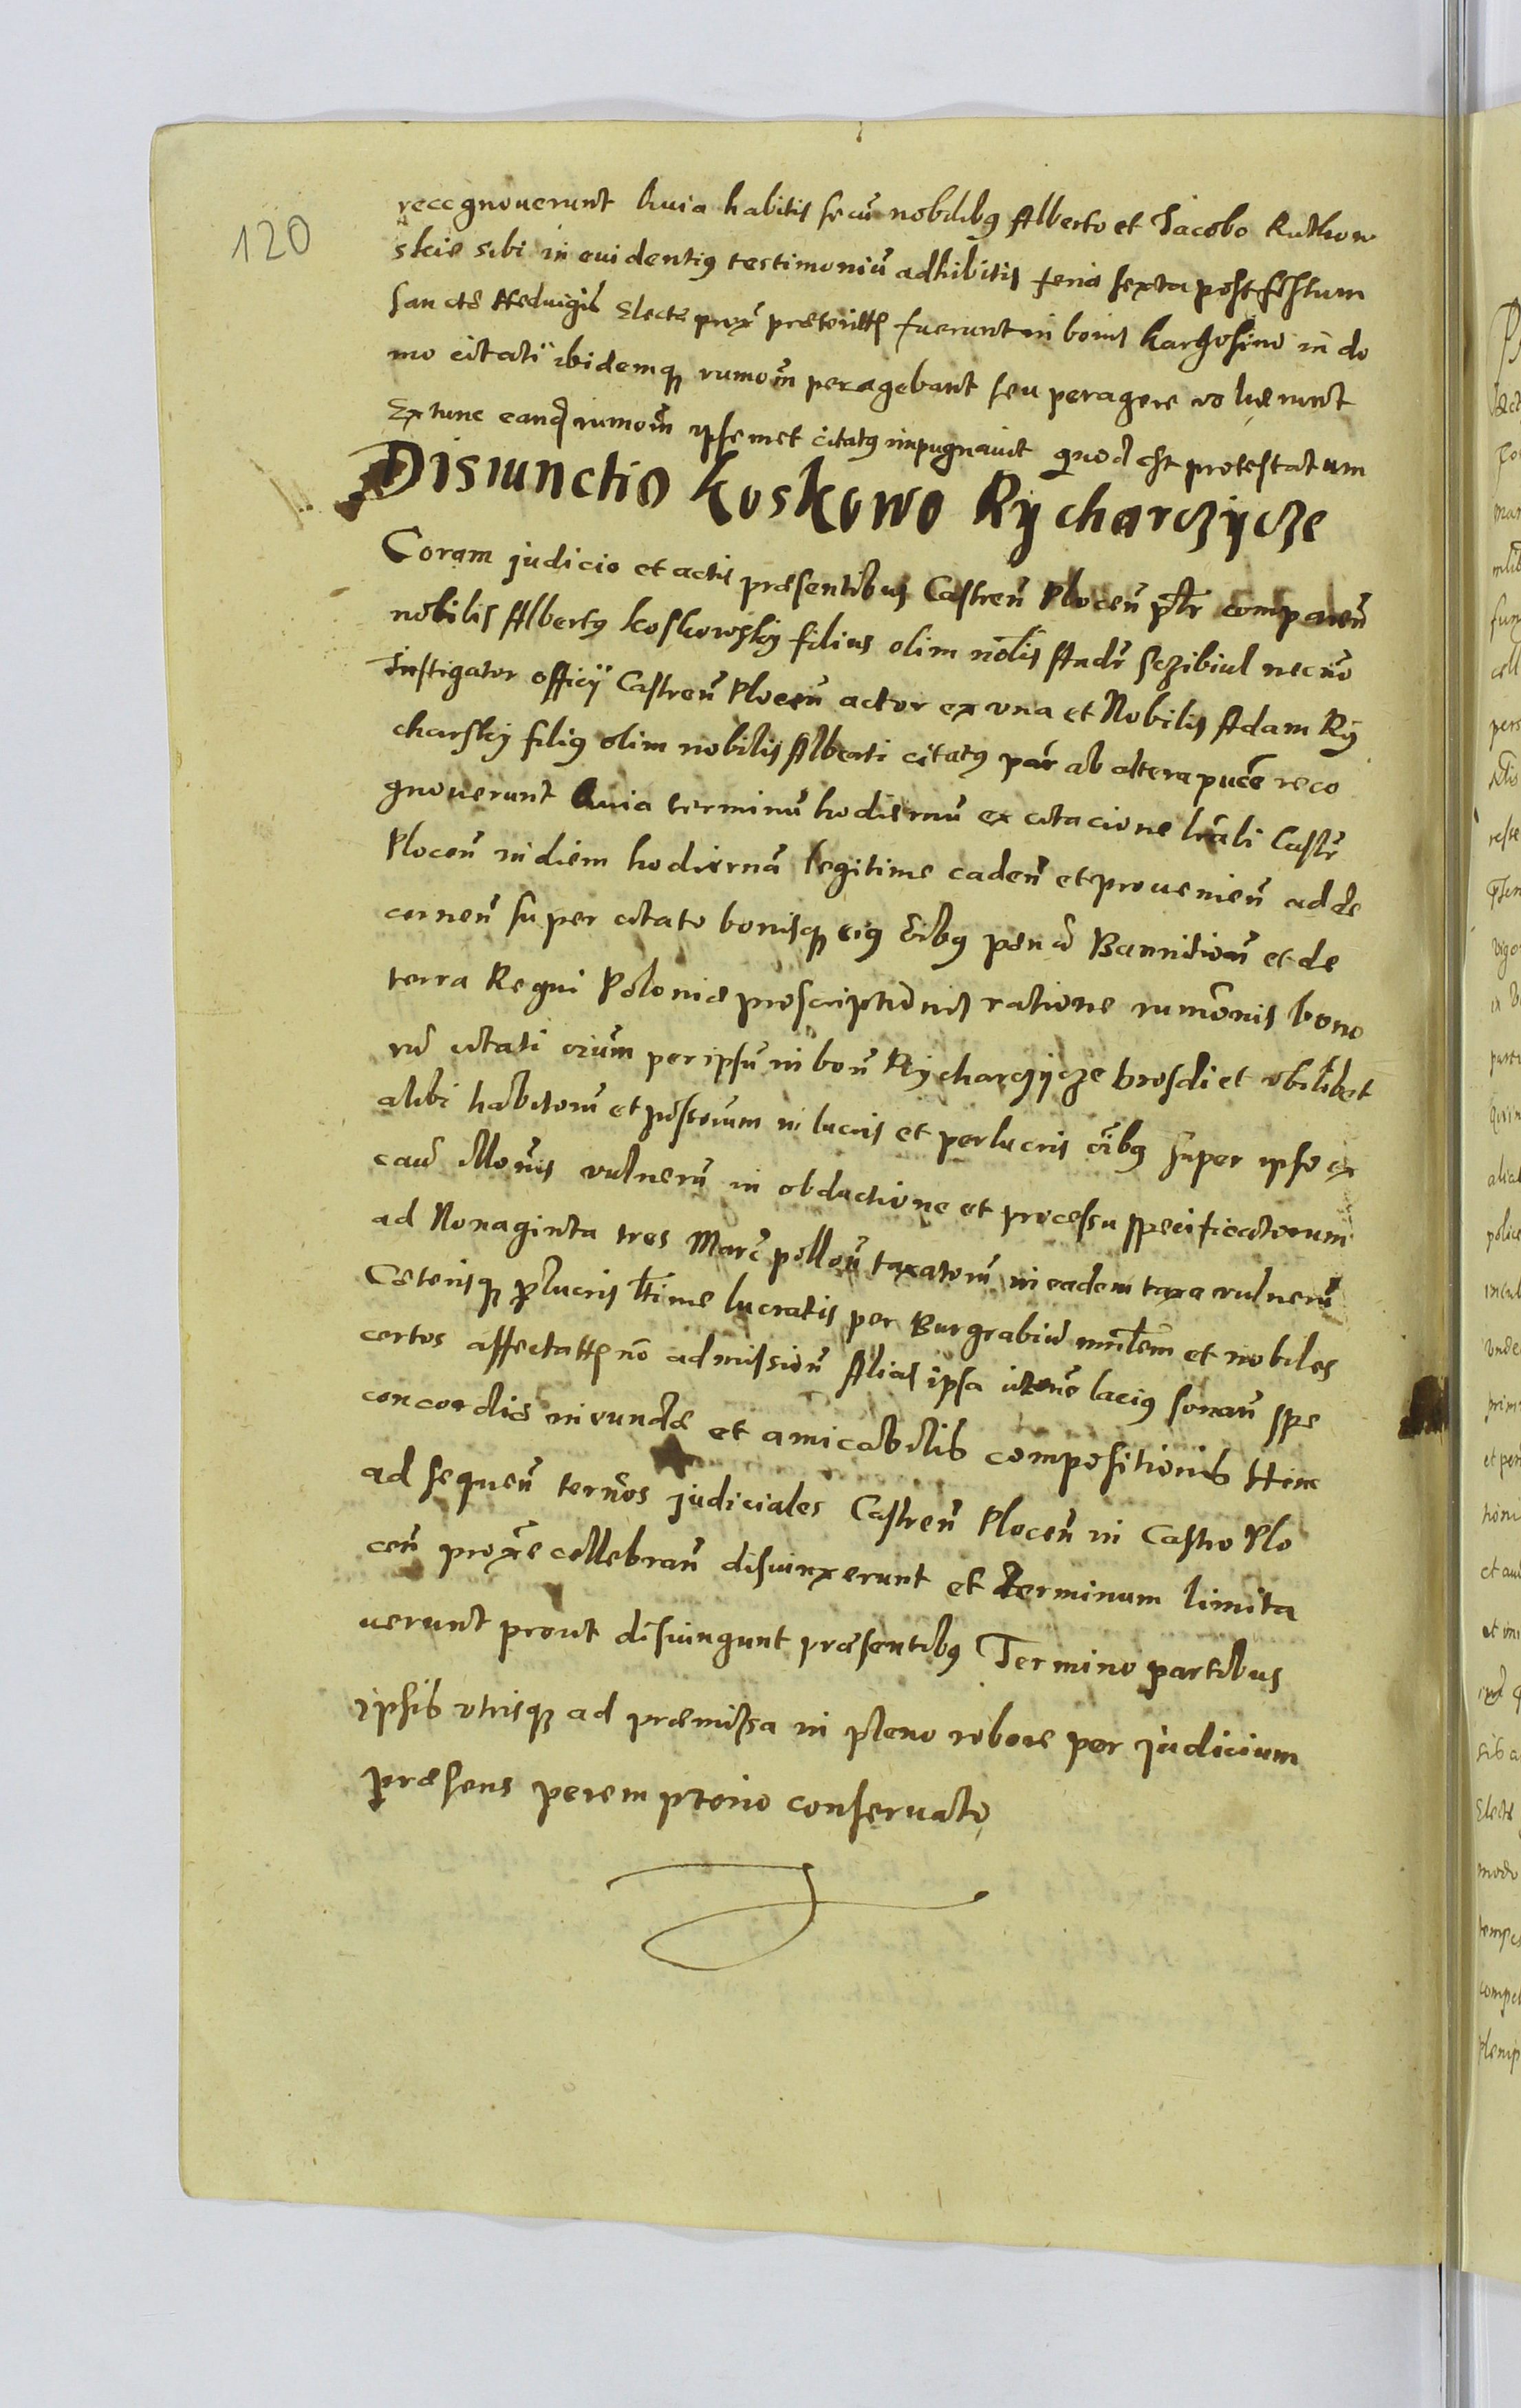 120
recognouerunt Quia habitis secū nobilibꝰ Alberto et Jacobo Rutkow
skie sibi in euidentiꝰ testimoniū adhibitis feria sexta post festum
Sanctæ Heduigis Electæ prox̄ præteritt̄ fuerunt in bonis Kargosino in do
mo citati ibidemqꝫ rumōm peragebant seu peragere voluerunt
Extunc eand̄ rumōm ipsemet citatꝰ impugnauit quod est protestatum
Disiunctio Koskowo Rycharczycze
Coram judicio et actis præsentibus Castren̄ Plocen̄ pr̄tr comparen̄
nobilis Albertꝰ Koskowsky filius olim nōlis Andr̄ Sczibiul necnō
Instigator officÿ Castren̄ Plocen̄ actor ex vna et Nobilis Adam Ry
charsky filiꝰ olim nobilis Alberti citatꝰ par̄ ab altera puc̄e reco
gnouerunt Quia terminū hodiernū ex citacione lr̄ali Castr̄
Plocen̄ in diem hodiernā legitime caden̄ et prouenien̄ ad de
cernen̄ super citato bonisqꝫ eiꝰ oībꝰ penā Bannitiōn̄ et de
terra Regni Poloniæ proscriptionis ratione rumōnis bono
rū citati oīum per ipsū in bon̄ Rycharczycze brosdi et vbilibet
alibi habitorū et possorum in lucris et perlucris oībꝰ super ipso ex
caū illōnis vulnerū in obductione et processu specificatorum
ad Nonaginta tres Marc̄ pollon̄ taxatorū in eadem taxa vulnerū
Ceterisqꝫ ꝑlucris lt̄ime lucratis per Burgrabiū mnl̄em et nobiles
certos affectatt̄ nō admission̄ Alias ipsa citōne laciꝰ sonan̄ spe
concordiæ ineundæ et amicabilis compositionis Hinc
ad sequen̄ ternōs judiciales Castren̄ Plocen̄ in Castro Plo
cen̄ prox̄e cellebran̄ disiunxerunt et terminum limita
uerunt prout disiungunt præsentibꝰ Termino partibus
ipsis vtrisqꝫ ad præmissa in pleno robore per judicium
præsens peremptorio conseruato